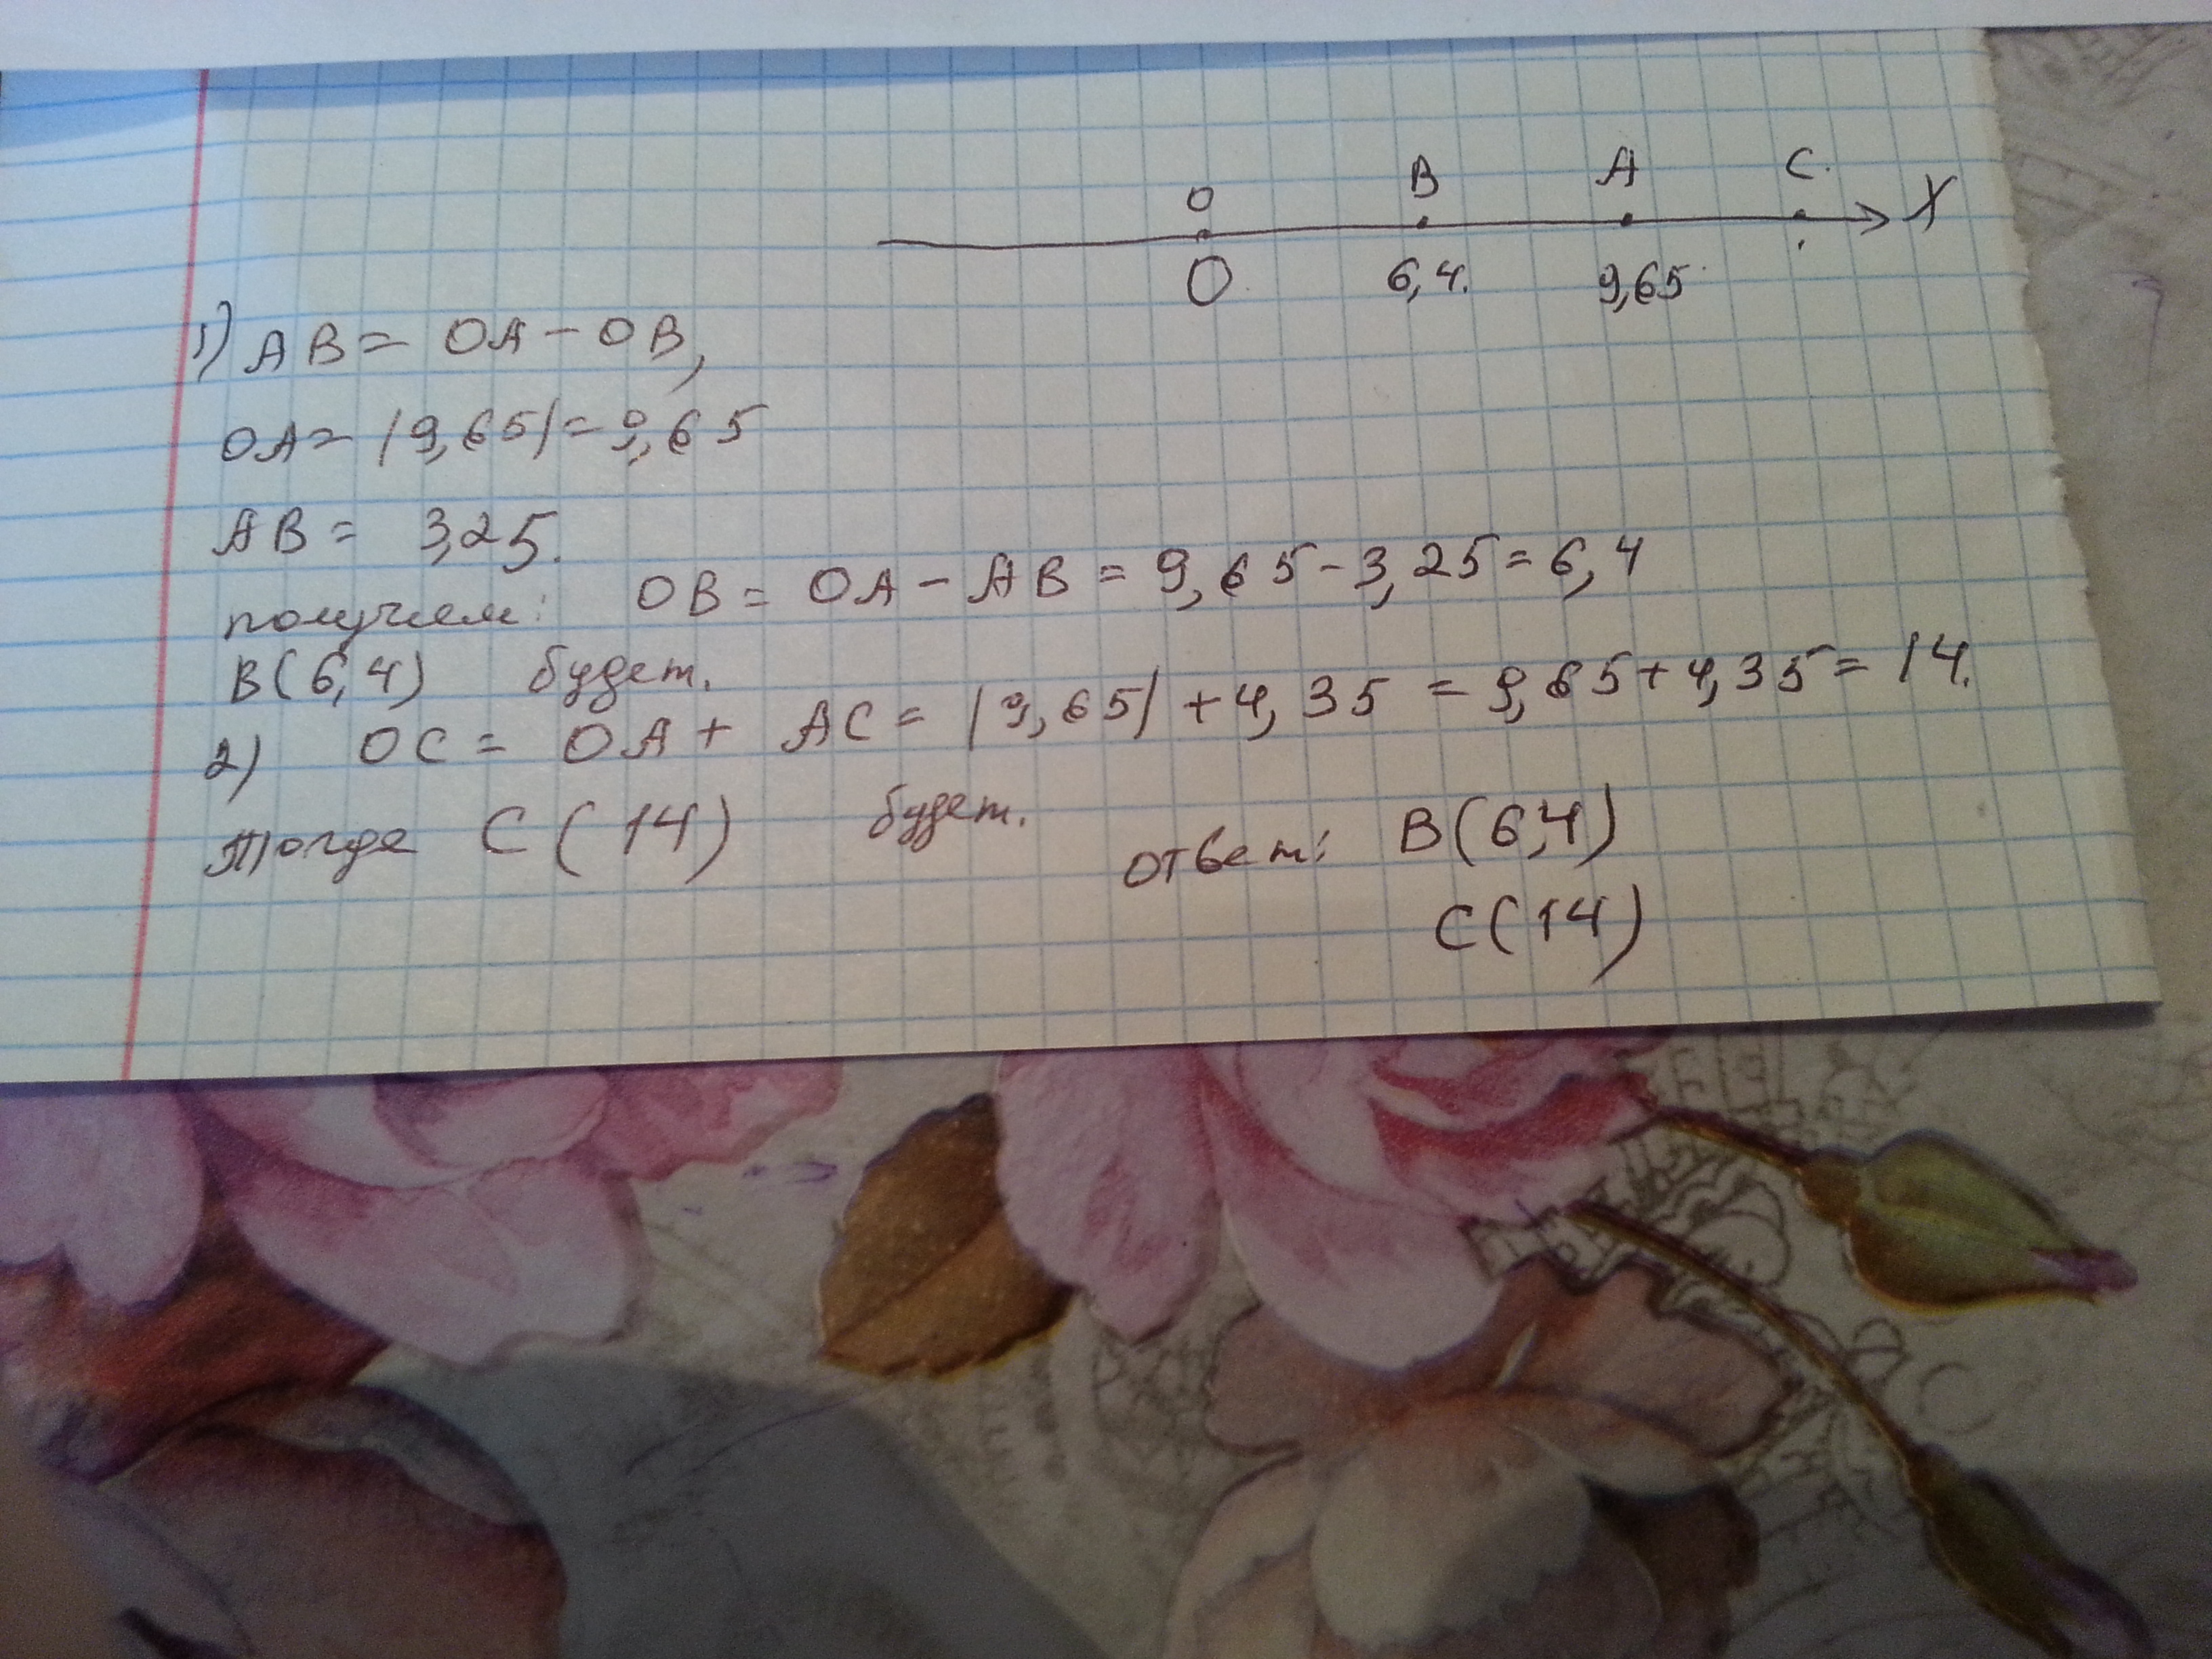 O B A C. X
O 6,4. 9,65
1) AB = OA - OB,
OA = |9,65| = 9,65
AB = 3,25.
получаем: OB = OA - AB = 9,65 - 3,25 = 6,4
B(6,4) будет.
2) OC = OA + AC = |9,65| + 4,35 = 9,65 + 4,35 = 14.
Тогда C(14) будет.
ответ: B(6,4)
C(14)